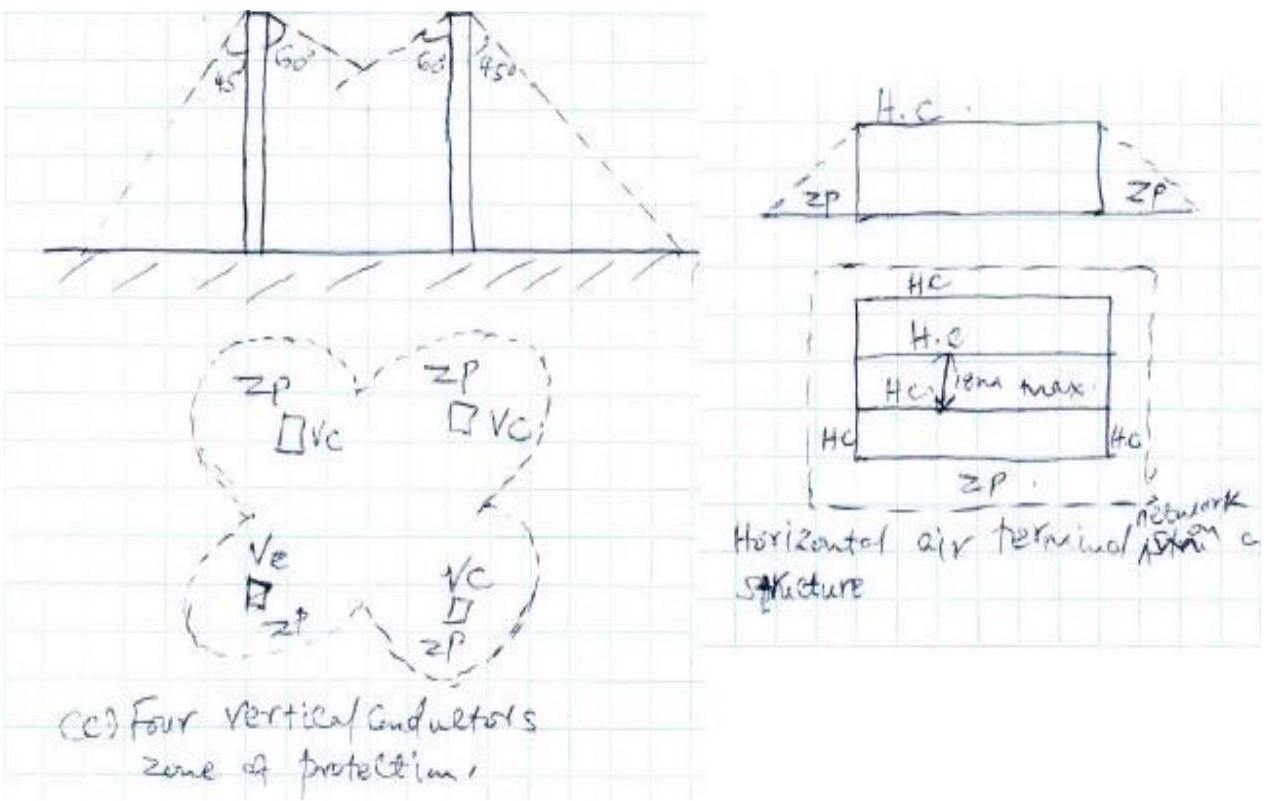 45 60° 60 45°
ZP ZP
VC VC
VC VC
ZP ZP
(C) Four vertical Conductors
zone of protection,
H.C.
ZP ZP
HC
H.C
HC max.
HC HC
ZP.
network
Horizontal air terminal on a
structure